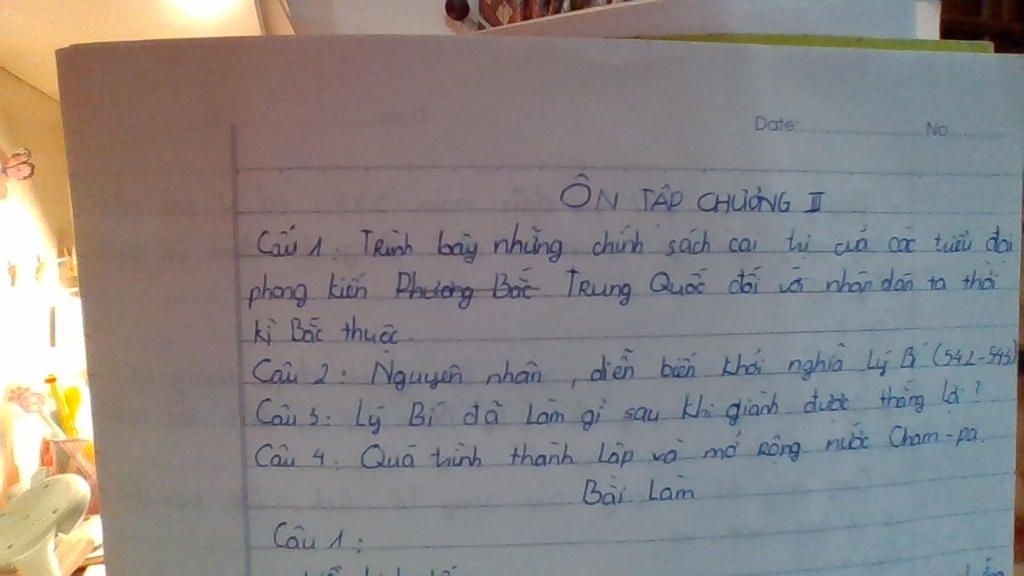 Date: No
ÔN TẬP CHƯƠNG III
Câu 1: Trình bày những chính sách cai trị của các triều đại
phong kiến Phương Bắc Trung Quốc đối với nhân dân ta thời
kì Bắc thuộc.
Câu 2: Nguyên nhân, diễn biến khởi nghĩa Lý Bí (542-543)
Câu 3: Lý Bí đã làm gì sau khi giành được thắng lợi?
Câu 4: Quá trình thành lập và mở rộng nước Cham-pa.
Bài làm
Câu 1: